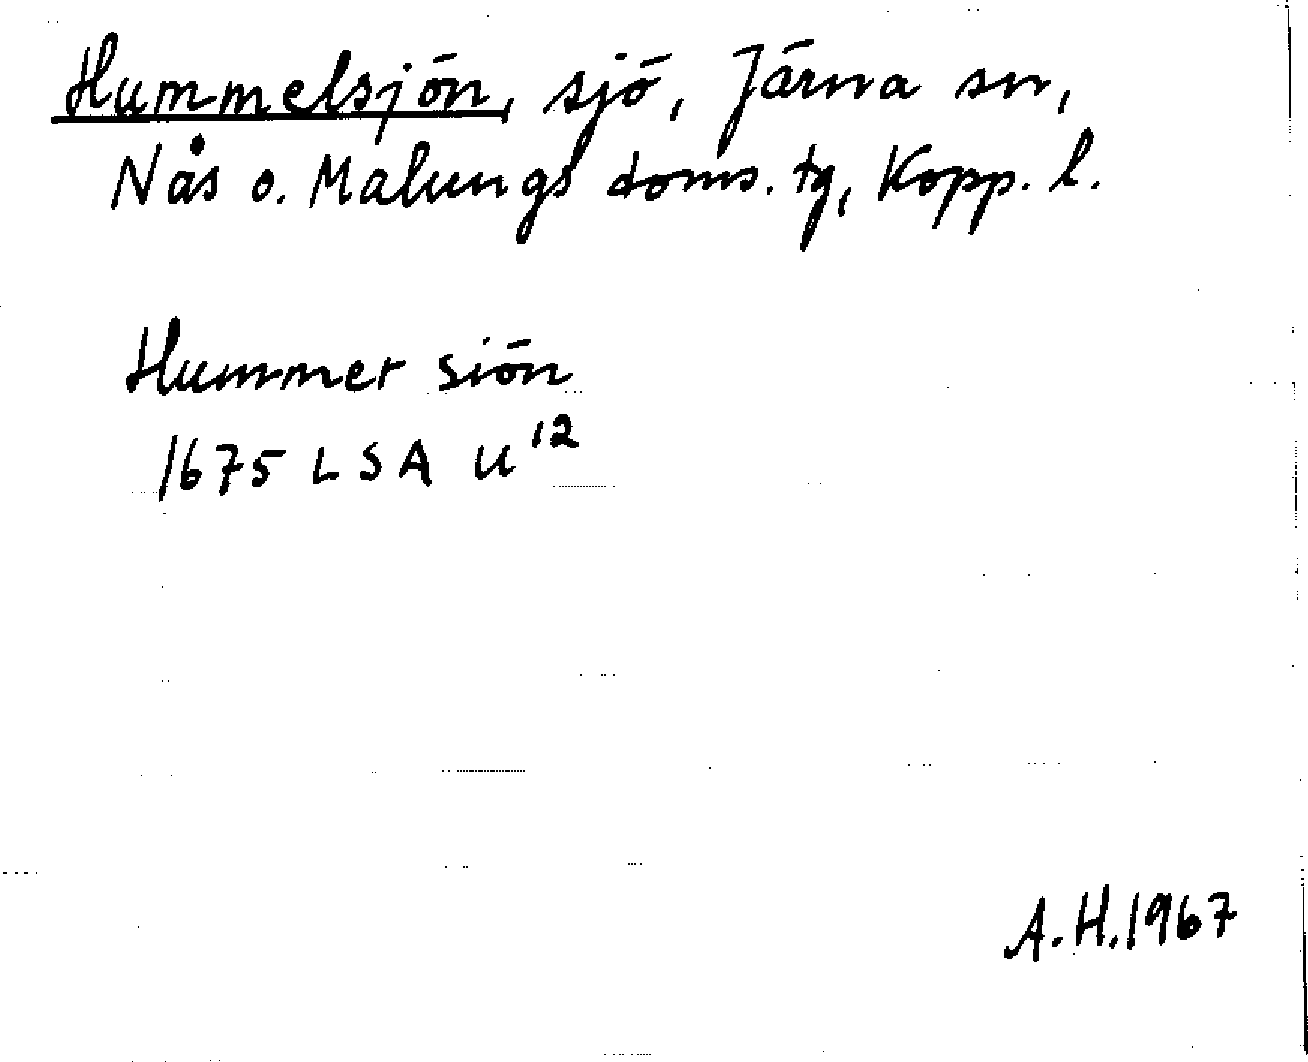 Hummelsjön, sjö, Järna sn,
Nås o. Malungs doms. tg, Kopp. l.
Hummer siön
1675 LSA U¹²
A.H. 1967